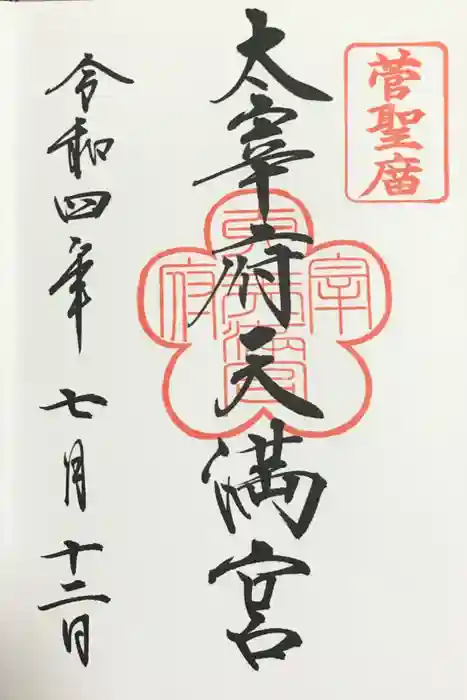 菅聖庿
太宰府天満宮
令和四年七月十二日